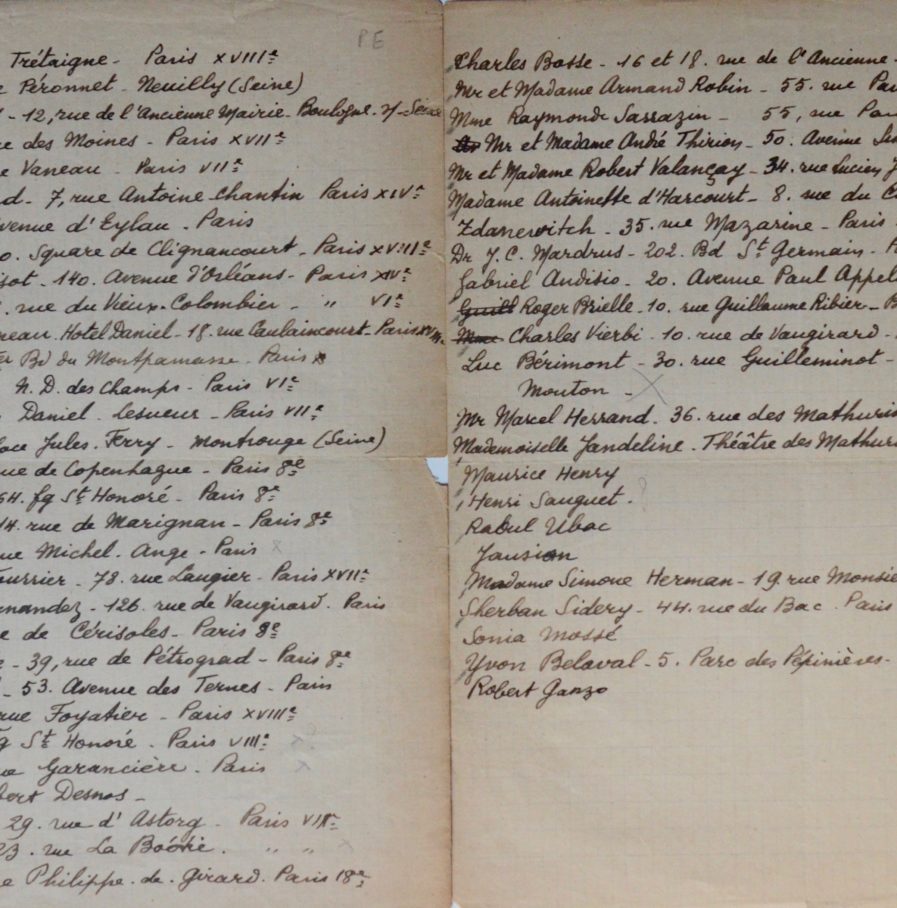 PE
Trétaigne - Paris XVIIIe
e Péronnet - Neuilly (Seine)
- 12, rue de l'Ancienne Mairie - Boulogne. s/-Seine
ue des Moines - Paris XVIIe
e Vaneau - Paris VIIe
d - 7, rue Antoine Chantin Paris XIVe
venue d'Eylau - Paris
0. Square de Clignancourt - Paris XVIIIe
isot - 140. Avenue d'Orléans - Paris XIVe
. rue du Vieux-Colombier - " VIe
neau. Hotel Daniel - 18. rue Caulaincourt. Paris
Bd du Montparnasse - Paris
N. D. des Champs - Paris VIe
Daniel - Lesueur - Paris VIIe
lace Jules - Ferry - Montrouge (Seine)
ue de Copenhague - Paris 8e
54. fg St Honoré - Paris 8e
14. rue de Marignan - Paris 8e
ue Michel - Ange - Paris x
ourrier - 78. rue Laugier - Paris XVIIe
nandez - 126. rue de Vaugirard. Paris
e de Cérisoles - Paris 8e
e - 39, rue de Pétrograd - Paris 8e
- 53. Avenue des Ternes - Paris
rue Foyatier - Paris XVIIIe
g St Honoré - Paris VIIIe x
ue Garancière - Paris x
bert Desnos -
29. rue d'Astorg - Paris
23. rue La Boétie. " " x
e Philippe. de. Girard. Paris 18e
Charles Bosse - 16 et 18. rue de l'Ancienne -
Mr et Madame Armand Robin - 55. rue Pa
Mme Raymonde Sarrazin - 55, rue Pa
Mr et Madame André Thirion - 50. Avenue Si
Mr et Madame Robert Valançay - 34. rue Lucien J
Madame Antoinette d'Harcourt - 8. rue du C
Zdanewitch - 35. rue Mazarine - Paris
Dr J. C. Mardrus - 202. Bd St Germain - P
Gabriel Audisio - 20. Avenue Paul Appel
Roger Brielle - 10. rue Guillaume Ribier - B
Mme Charles Vierbi - 10. rue de Vaugirard -
Luc Bérimont - 30. rue Guilleminot -
Mouton - X
Mr Marcel Herrand - 36. rue des Mathurin
Mademoiselle Jandeline - Théâtre des Mathur
Maurice Henry
Henri Sauguet - ?
Raoul Ubac
Jausion
Madame Simone Herman - 19. rue Monsie
Sherban Sidery - 44. rue du Bac. Paris
Sonia Mossé
Yvon Belaval - 5. Parc des Pépinières -
Robert Ganzo